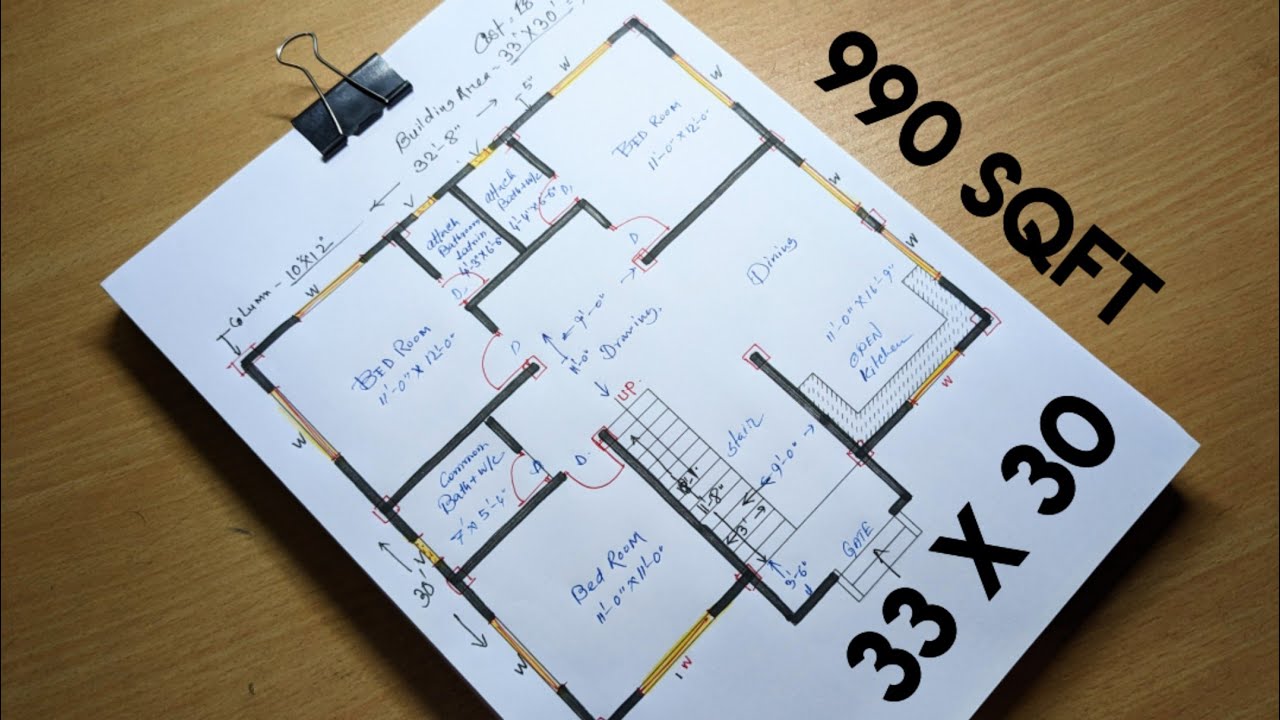 Cost - 18
Building Area - 33' X 30'
32'-8"
5"
Column - 10"X12"
W
W
V
V
W
W
W
W
W
W
V
W
W
BED ROOM
11'-0" X 12'-0"
attach
Bath+w/c
4'-4"X6'-6"
D1
D
attach
Bathroom
Latrin
4'-3"X6'-6"
D1
BED ROOM
11'-0" X 12'-0"
D
9'-0"
11'-0"
Drawing
Dining
11'-0" X 16'-9"
OPEN
Kitchen
UP
Stair
9'-0"
11'-8"
3'
3'-6"
GATE
Common
Bath+w/c
7' X 5'-4"
D
30'
Bed ROOM
11'-0" X 11'-0"
990 SQFT
33 X 30